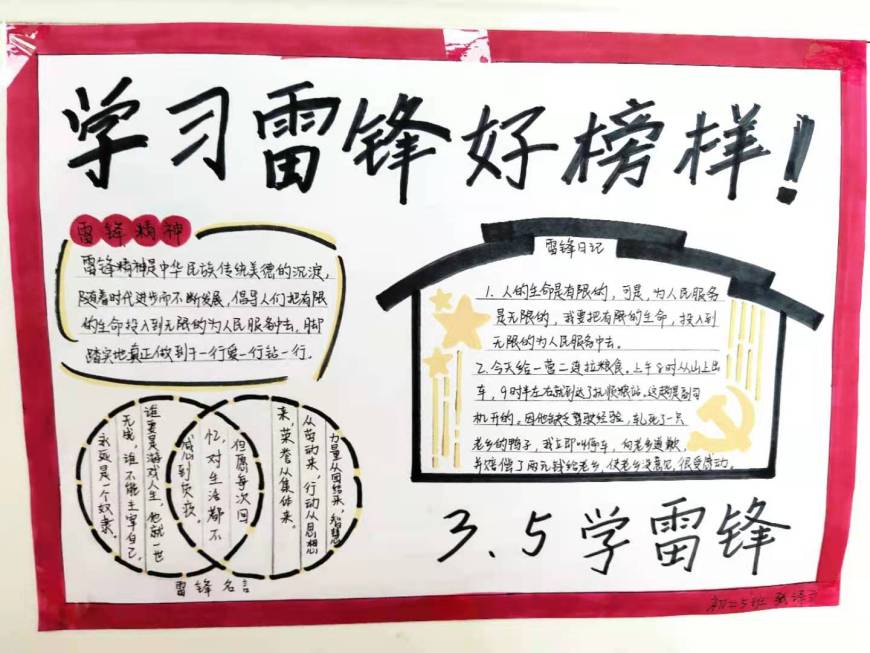 学习雷锋好榜样!
雷锋精神
雷锋精神是中华民族传统美德的沉淀,
随着时代进步而不断发展,倡导人们把有限
的生命投入到无限的为人民服务中去,脚
踏实地真正做到干一行爱一行钻一行。
雷锋日记
1.人的生命是有限的,可是,为人民服务
是无限的,我要把有限的生命,投入到
无限的为人民服务中去。
2.今天给一营二连拉粮食。上午8时从山上出
车,9时半左右就到达了抚顺粮站。这趟是副司
机开的,因他缺乏驾驶经验,轧死了一只
老乡的鸭子,我立即叫停车,向老乡道歉,
并赔偿了两元钱给老乡,使老乡没意见,很受感动。
力量从团结来,智慧
从劳动来,行动从思想
来,荣誉从集体来。
但愿每次回
忆,对生活都不
感到负疚。
谁要是游戏人生,他就一世
无成,谁不能主宰自己,
永远是一个奴隶。
雷锋名言
3.5学雷锋
初二5班